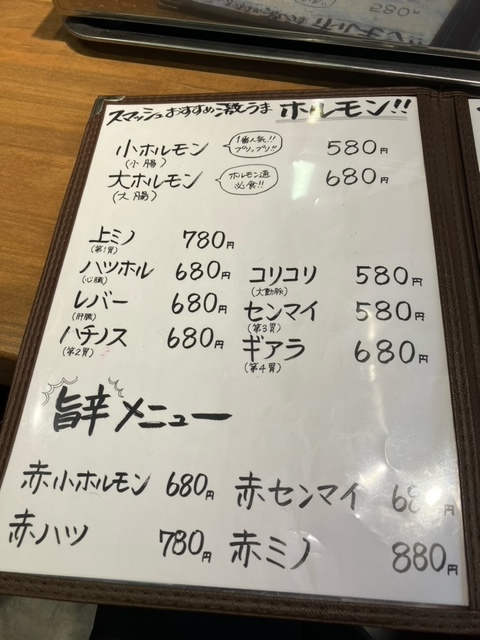 スマッシュおすすめ激うま ホルモン!!
小ホルモン 1番人気!! プリップリ!! 580円
(小腸)
大ホルモン ホルモン通必食!! 680円
(大腸)
上ミノ 780円
(第1胃)
ハツホル 680円
(心臓)
レバー 680円
(肝臓)
ハチノス 680円
(第2胃)
コリコリ 580円
(大動脈)
センマイ 580円
(第3胃)
ギアラ 680円
(第4胃)
旨辛メニュー
赤小ホルモン 680円
赤センマイ 680円
赤ハツ 780円
赤ミノ 880円